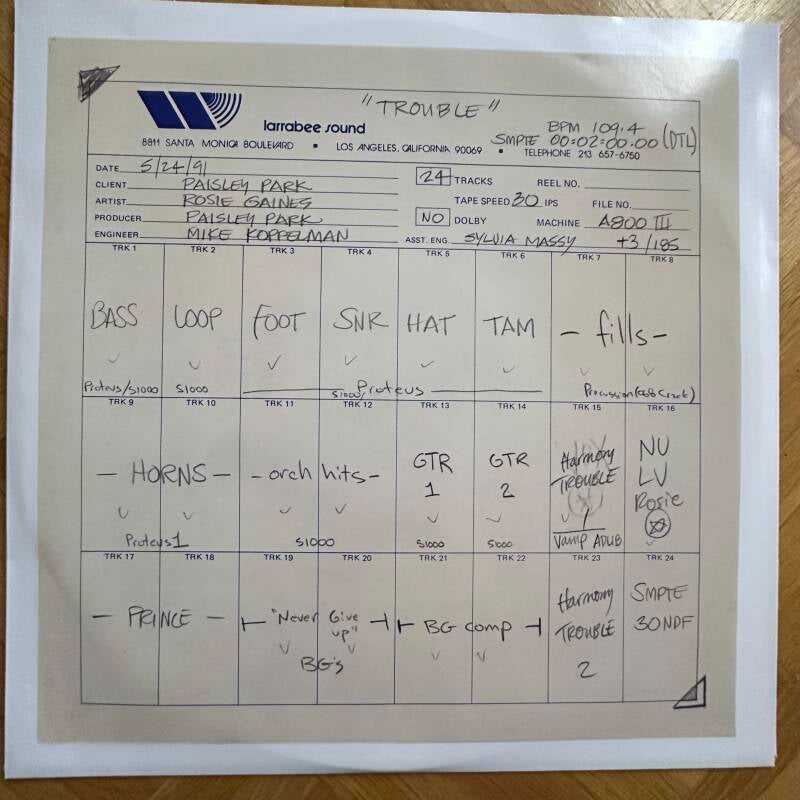 "TROUBLE"
larrabee sound
BPM 109.4
SMPTE 00:02:00.00 (DTL)
8811 SANTA MONICA BOULEVARD • LOS ANGELES, CALIFORNIA 90069 • TELEPHONE 213 657-6750
DATE 5/24/91
24 TRACKS REEL NO.
CLIENT PAISLEY PARK
TAPE SPEED 30 IPS FILE NO.
ARTIST ROSIE GAINES
NO DOLBY MACHINE A800 III
PRODUCER PAISLEY PARK
ENGINEER MIKE KOPPELMAN
ASST. ENG. SYLVIA MASSY +3/185
TRK 1 TRK 2 TRK 3 TRK 4 TRK 5 TRK 6 TRK 7 TRK 8
BASS LOOP FOOT SNR HAT TAM - fills -
Proteus/S1000 S1000 S1000/ Proteus
TRK 9 TRK 10 TRK 11 TRK 12 TRK 13 TRK 14 TRK 15 TRK 16
- HORNS - - orch hits - GTR 1 GTR 2 Harmony TROUBLE NU LV Rosie
Proteus 1 S1000 S1000 S1000 Vamp ADLIB
TRK 17 TRK 18 TRK 19 TRK 20 TRK 21 TRK 22 TRK 23 TRK 24
- PRINCE - "Never Give up" BG's BG comp Harmony TROUBLE 2 SMPTE 30NDF